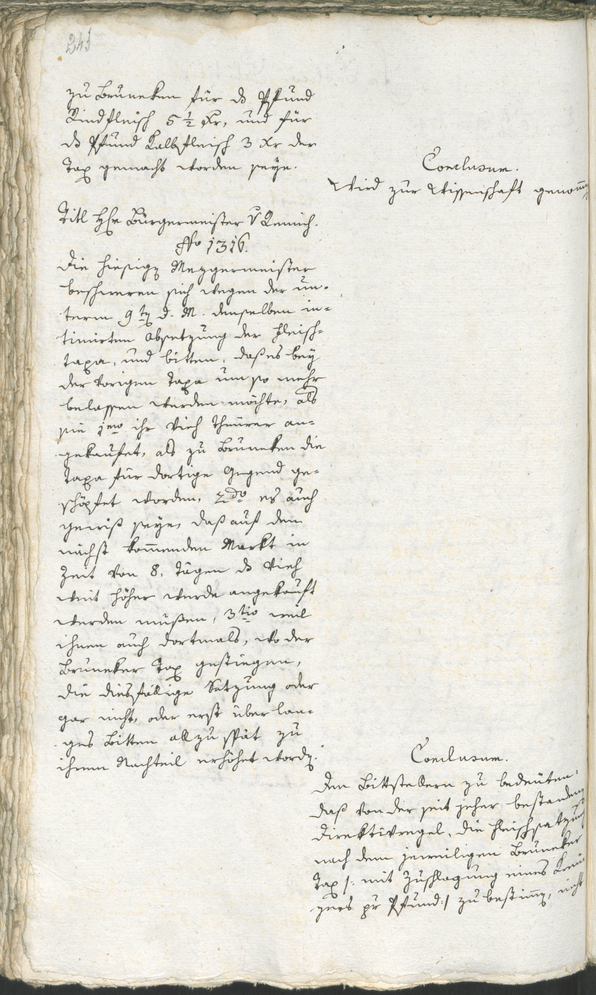 241
zu Bruneken für ds Pfund
Rindfleisch 5 1/2 Xr, und für
ds Pfund Kalbfleisch 3 Xr der
Tax gemacht worden seye.
Conclusum.
Wird zur Wissenschaft genom̄
Titl Hr Bürgermeister v
No 1316.
Die hiesige Mezgermeister
beschweren sich wegen der un-
term 9ten d. M. denselben in-
timirten Absetzung der Fleisch-
taxa, und bitten, daß es bey
der vorigen Taxa um so mehr
belassen werden möchte, als
sie 1mo ihr Vieh theurer an-
gekaufet, als zu Bruneken die
Taxa für dortige Gegend ge-
schöpfet worden, 2do es auch
gewiß seye, daß auf dem
nächst kom̄enden Markt in
Zeit von 8. Tägen ds Vieh
weit höher werde angekauft
werden müßen, 3tio weil
ihnen auch dortmals, wo der
Bruneker Tax gestiegen,
die diesfälige Setzung oder
gar nicht, oder erst über lan-
ges Bitten allzu spät zu
ihrem Nachteil erhöhet word.
Conclusum.
Den Bittstellern zu bedeuten,
daß von der seit jeher bestanden
Direktivregel, die Fleischsatzung
nach dem jeweiligen Bruneker
Tax /: mit Zuschlagung eines Kreu
zers pr Pfund :/ zu bestim̄, nicht